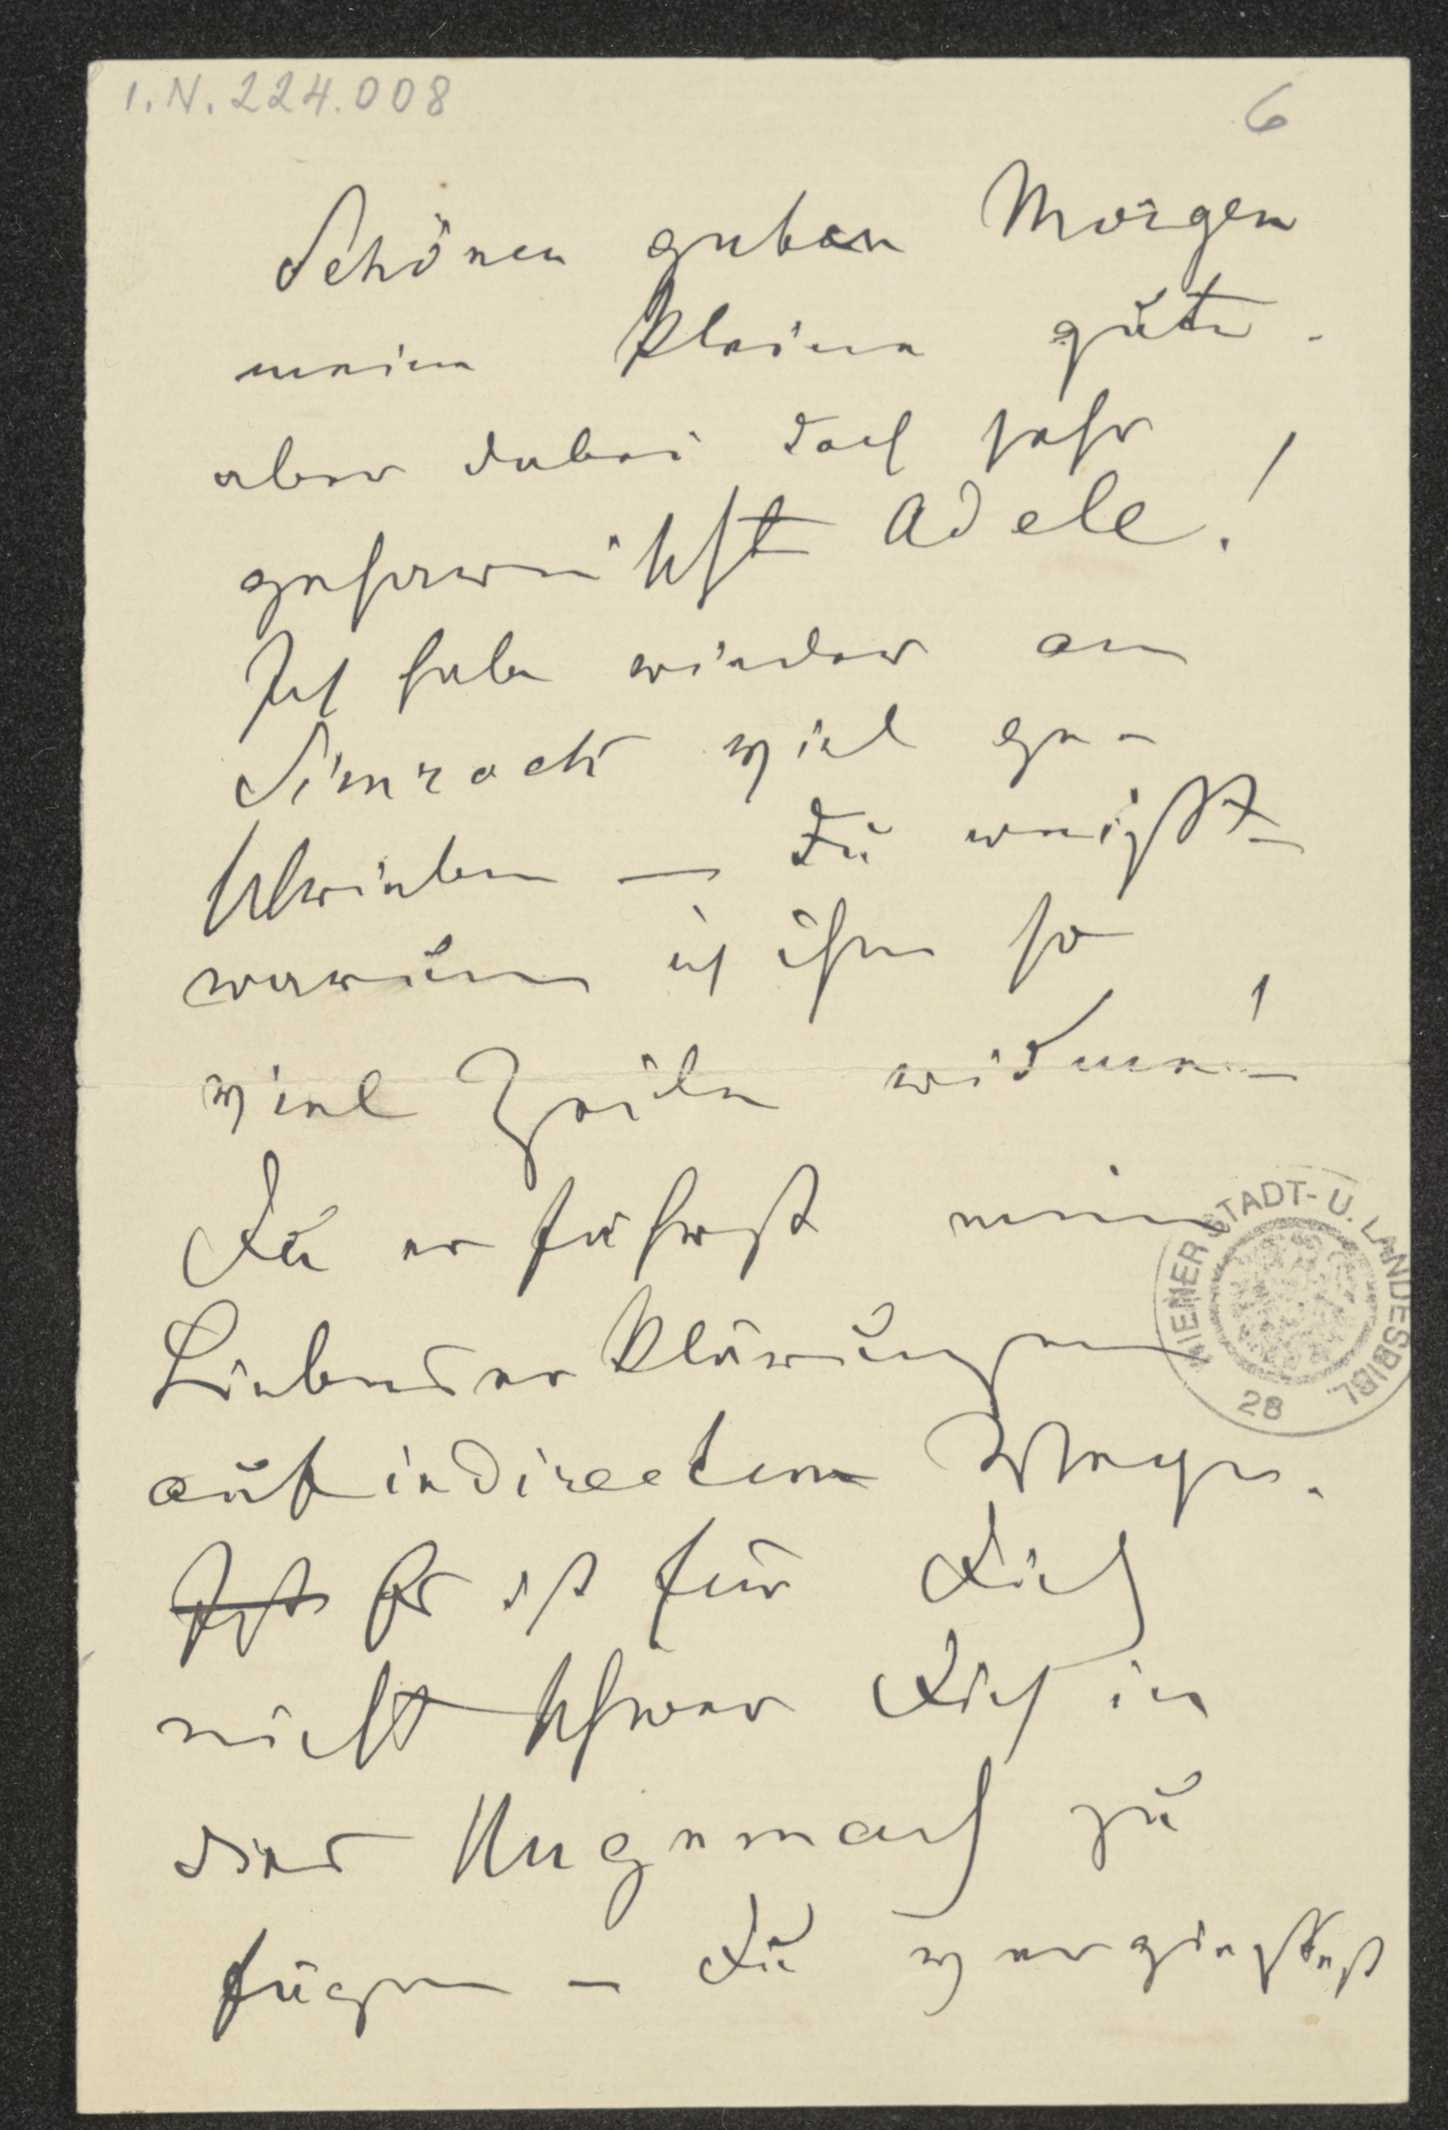 I.N. 224.008
6
Schönen guten Morgen
meine kleine gute
aber dabei doch sehr
Adele!
Ich habe wieder an
Simrock viel ge-
schrieben – Du weißt –
warum ich ihm so
viel Zeilen widme! –
Du erfährst meine
Liebeserklärungen
auf indirectem Wege.
Ist Es ist für Dich
nicht schwer Dich in
dies Ungemach zu
fügen – Du
WIENER STADT- U. LANDESBIBL.
28